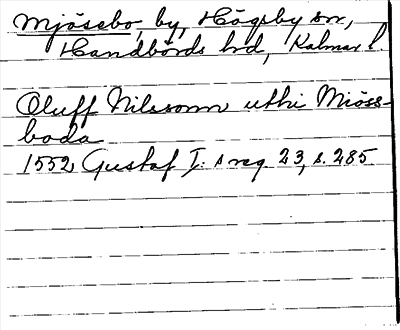 Mjösebo, by, Högsby sn,
Handbörds hd, Kalmar l.
Oluff Nilssonn uthi Miöss-
boda
1552 Gustaf I: s reg 23, s. 285